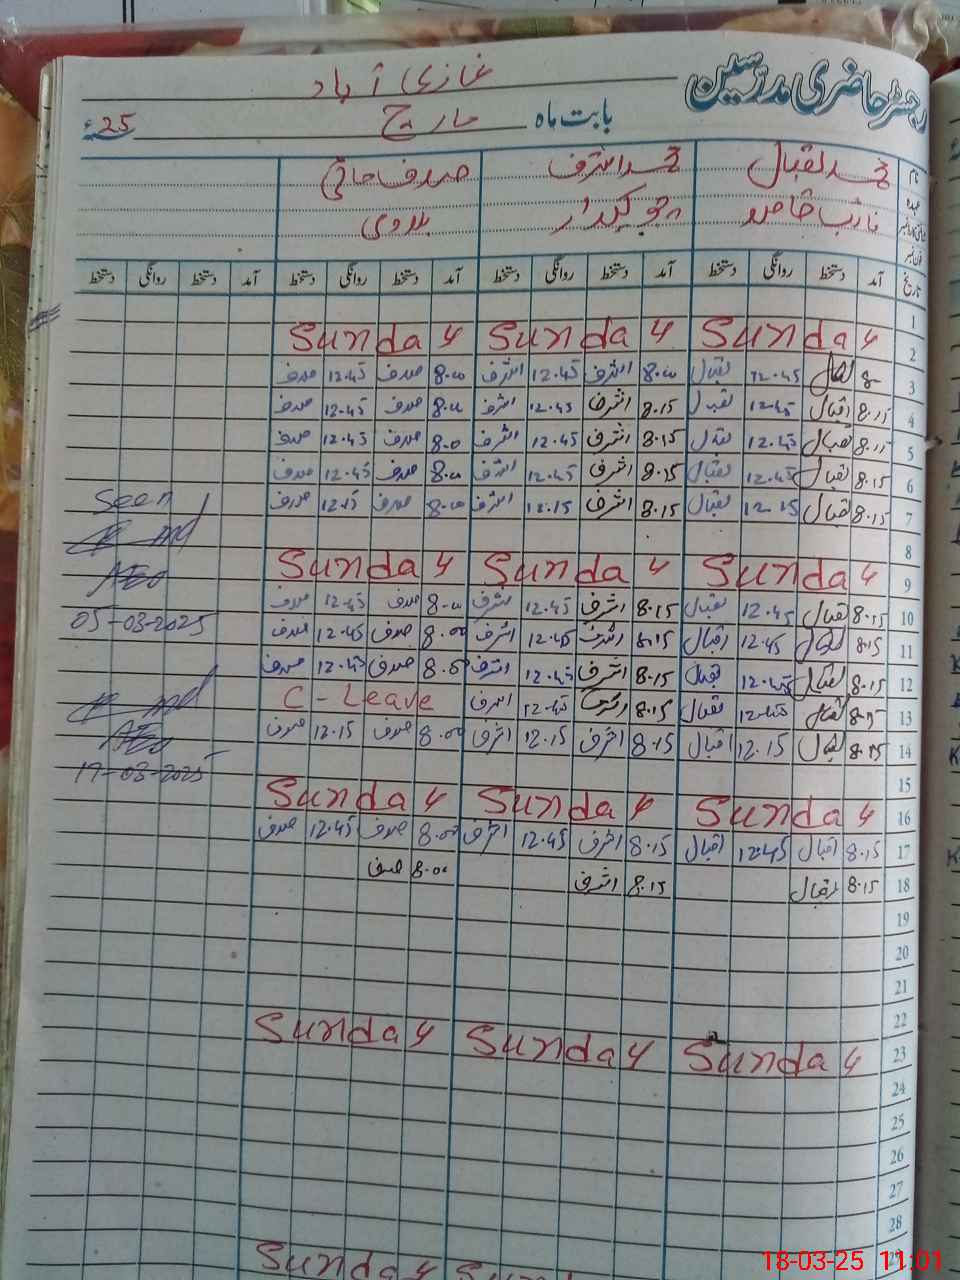 رجسٹر حاضری مدرسین
غازی آباد
بابت ماہ مارچ 25ء
نام محمد اقبال محمد اشرف صدف حاجی
عہدہ نائب قاصد چوکیدار
تاریخ آمد دستخط روانگی دستخط آمد دستخط روانگی دستخط آمد دستخط روانگی دستخط آمد دستخط روانگی دستخط
1
2 Sunday Sunday Sunday
3 8- اقبال 12.45 اقبال 8.00 اشرف 12.45 اشرف 8.00 صدف 12.45 صدف
4 8.15 اقبال 12.45 اقبال 8.15 اشرف 12.45 اشرف 8.00 صدف 12.45 صدف
5 8.15 اقبال 12.45 اقبال 8.15 اشرف 12.45 اشرف 8.0 صدف 12.45 صدف
6 8.15 اقبال 12.45 اقبال 8.15 اشرف 12.45 اشرف 8.00 صدف 12.45 صدف
7 8.15 اقبال 12.15 اقبال 8.15 اشرف 12.15 اشرف 8.00 صدف 12.15 صدف
Seen
8
9 Sunday Sunday Sunday
AEO
10 8.15 اقبال 12.45 اقبال 8.15 اشرف 12.45 اشرف 8.00 صدف 12.45 صدف
05-03-2025
11 8.15 اقبال 12.45 اقبال 8.15 اشرف 12.45 اشرف 8.00 صدف 12.45 صدف
12 8.15 اقبال 12.45 اقبال 8.15 اشرف 12.45 اشرف 8.00 صدف 12.45 صدف
13 8.15 اقبال 12.45 اقبال 8.15 اشرف 12.45 اشرف C-Leave
14 8.15 اقبال 12.15 اقبال 8.15 اشرف 12.15 اشرف 8.00 صدف 12.15 صدف
AEO
17-03-2025
15
16 Sunday Sunday Sunday
17 8.15 اقبال 12.45 اقبال 8.15 اشرف 12.45 اشرف 8.00 صدف 12.45 صدف
18 8.15 اقبال 8.15 اشرف 8.00 صدف
19
20
21
22
23 Sunday Sunday Sunday
24
25
26
27
28
29
Sunday Sunday
18-03-25 11:01